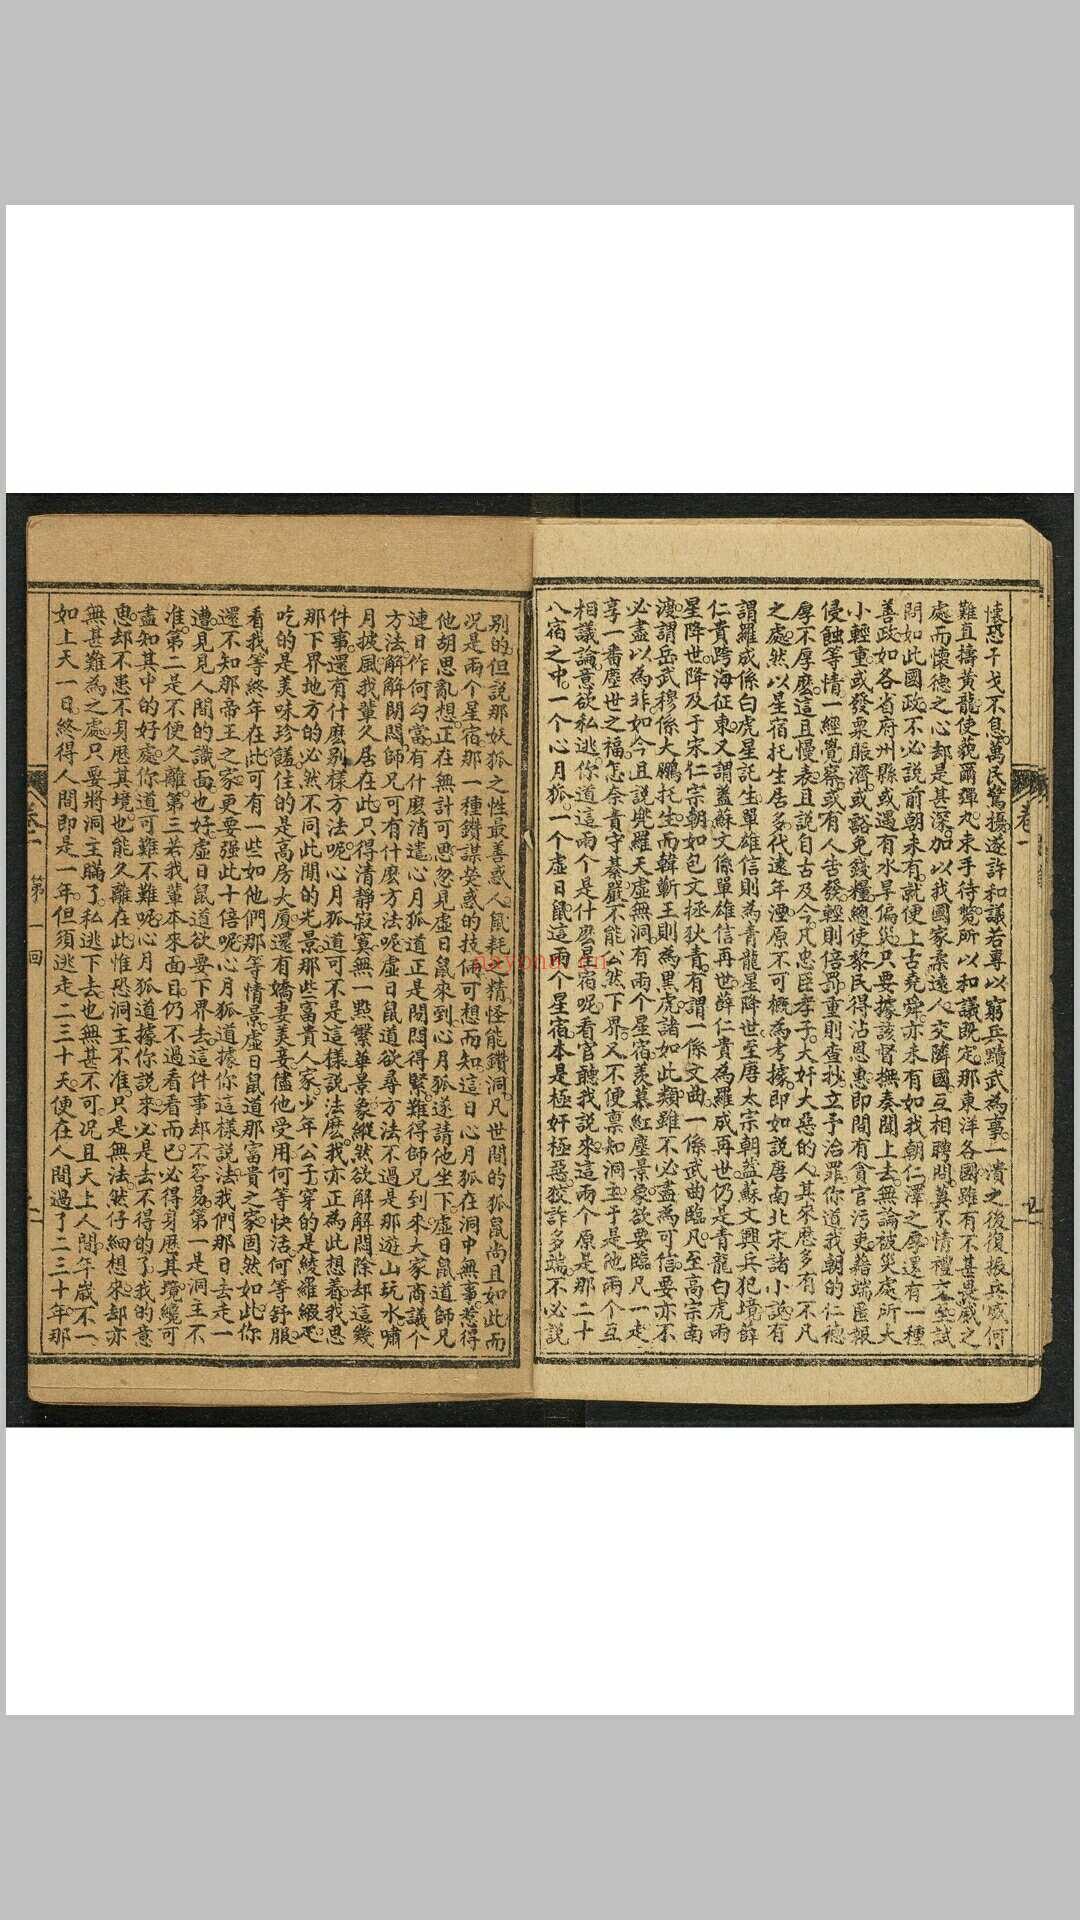 懷惑干戈不息萬民驚擾遂許和議若專以窮兵黷武為事一潰之後復振兵威何
難直擣黃龍使藐爾彈丸束手待斃所以和議既定那東洋各國雖有不甚畏威之
處而懷德之心却是甚深加以我國家柔遠人交隣國互相聘問莫不情禮交至試
問如此國政不必說前朝未有就便上古堯舜亦未有如我朝仁澤之厚還有一種
善政如各省府州縣或遇有水旱偏災只要據該督撫奏聞上去無論被災處所大
小輕重或發粟賑濟或豁免錢糧總使黎民得沾恩惠即間有貪官污吏藉端匿報
侵蝕等情一經覺察或有人告發輕則倍罰重則查抄立予治罪你道我朝的仁德
厚不厚麽這且慢表且說自古及今凡忠臣孝子大奸大惡的人其來歷多有不凡
之處然以星宿托生居多代遠年湮原不可概為考據即如說唐南北宋諸小說有
謂羅成係白虎星託生單雄信則為青龍星降世至唐太宗朝葢蘇文興兵犯境薛
仁貴跨海征東又謂葢蘇文係單雄信再世薛仁貴為羅成再世仍是青龍白虎兩
星降世降及于宋仁宗朝如包文拯狄青有謂一係文曲一係武曲臨凡至高宗南
渡謂岳武穆係大鵬托生而韓蘄王則為黑虎諸如此類雖不必盡為可信要亦不
必盡以為非如今且說兜羅天虛無洞有兩個星宿羨慕紅塵景象欲要臨凡一走
享一番塵世之福怎奈青守綦嚴不能公然下界又不便稟知洞主于是他兩個互
相議論意欲私逃你道這兩個是什麽星宿呢看官聽我說來這兩個原是那二十
八宿之中一個心月狐一個虛日鼠這兩個星宿本是極奸極惡狡詐多端不必說
別的但說那妖狐之性最善惑人鼠耗之精怪能鑽洞凡世間的狐鼠尚且如此而
況是兩個星宿那一種鑽謀熒惑的技倆可想而知這日心月狐在洞中無事惹得
他胡思亂想正在無計可思忽見虛日鼠來到心月狐遂請他坐下虛日鼠道師兄
連日作何勾當有什麽消遣心月狐道正是悶悶得緊難得師兄到來大家商議個
方法解解閑悶師兄可有什麽方法呢虛日鼠道欲尋方法不過是那遊山玩水嘯
月披風我輩久居在此只得清靜寂寞無一點繁華景象縱然欲解解悶除却這幾
件事還有什麽別樣方法呢心月狐道可不是這樣說法麽我亦正為此想着我思
那下界地方的必然不同此間的光景那些富貴人家少年公子穿的是綾羅緞疋
吃的是美味珍饈住的是高房大廈還有嬌妻美妾儘他受用何等快活何等舒服
看我等終年在此可有一些如他們那等情景虛日鼠道那富貴之家固然如此你
還不知那帝王之家更要强此十倍呢心月狐道據你這樣說法我們那日去走一
遭見見人間的識面也好虛日鼠道欲要下界去這件事却不容易第一是洞主不
准第二是不便久離第三若我輩本來面目仍不過看看而已必得身歷其境纔可
盡知其中的好處你道可難不難呢心月狐道據你說來必是去不得的了我的意
思却不患不身歷其境也能久離在此惟恐洞主不准只是無法然仔細想來却亦
無甚難為之處只要將洞主瞞了私逃下去也無甚不可況且天上人間年歲不一
如上天一日終得人間即是一年但須逃走二三十天便在人間過了二三十年那
卷一
卷一
第一回
nayona.cn